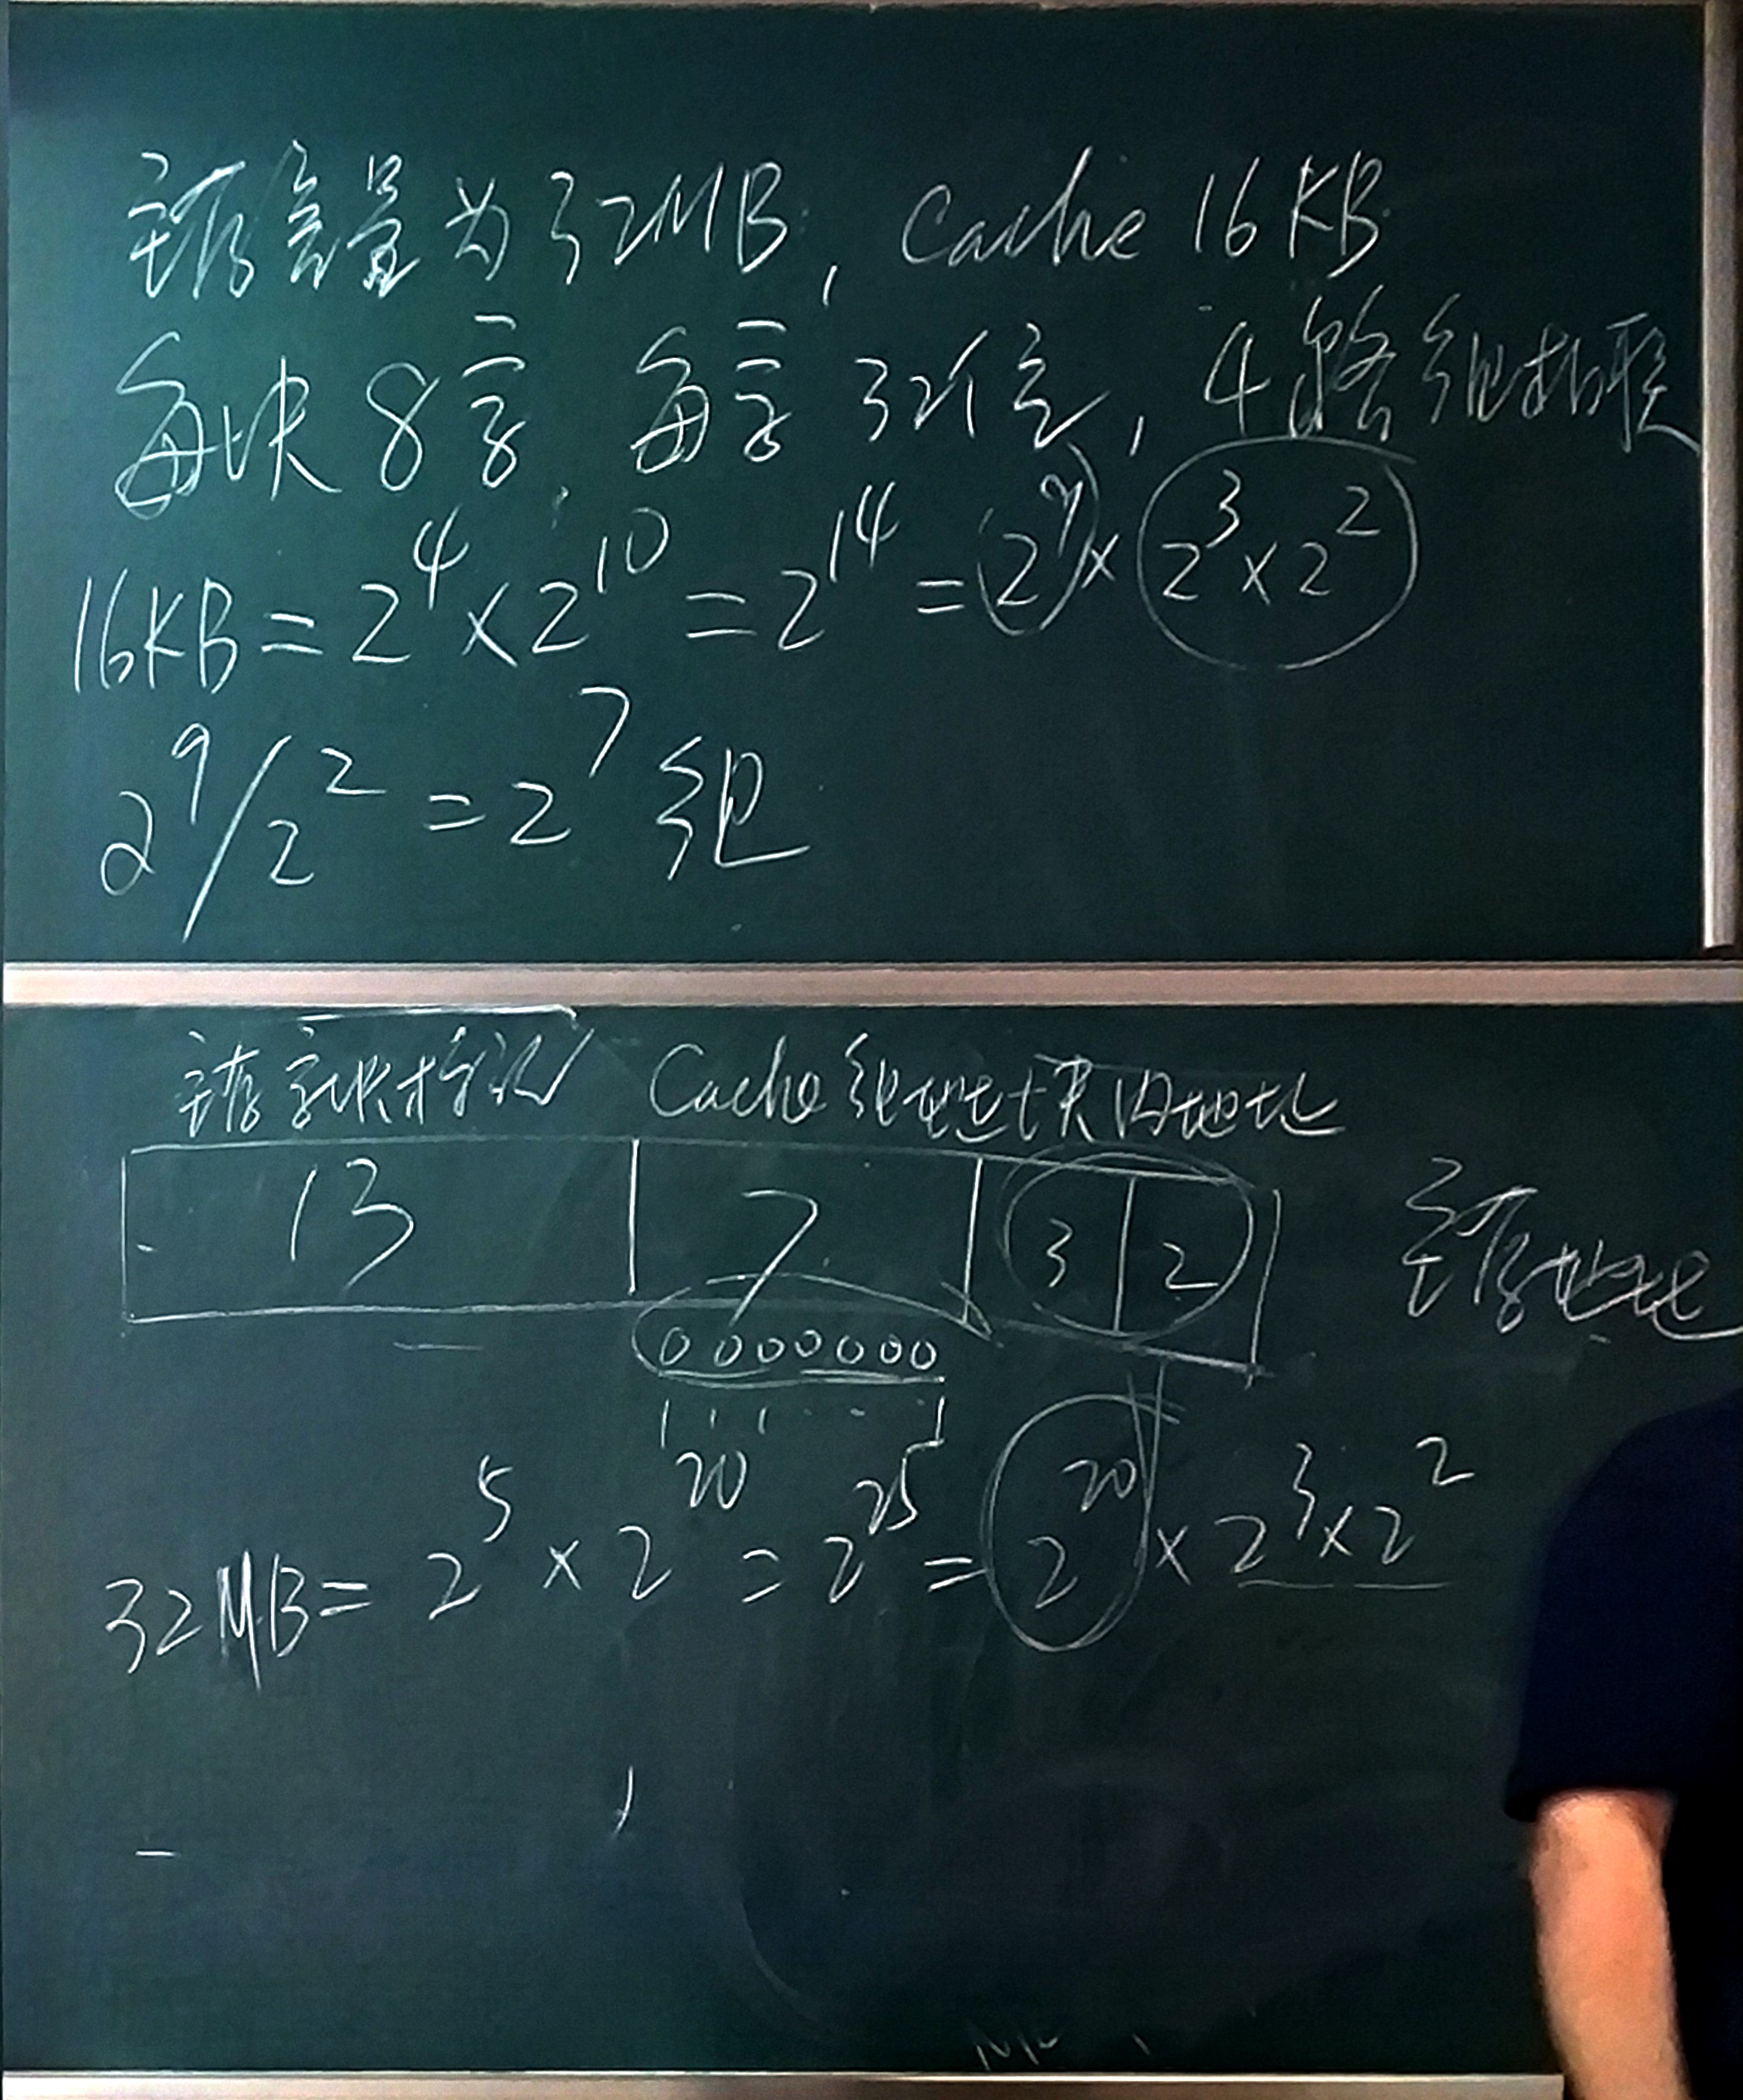 主存容量为32MB, Cache 16KB
每块8字, 每字32位, 4路组相联
16KB=2^4×2^10=2^14=2^9×2^3×2^2
2^9/2^2=2^7组
主存字块标记 Cache组地址 块内地址
13 7 3 2 主存地址
0000000
1 1 1 · · - 1
32MB=2^5×2^20=2^25=2^20×2^3×2^2